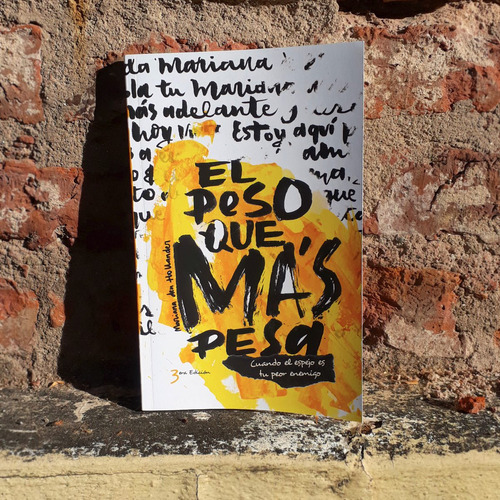 da Mariana
la tu Mariana
más adelante y
hoy Estoy aquí
EL
PESO
QUE
MÁS
PESA
Mariana den Hollander
Cuando el espejo es
tu peor enemigo
3era Edición